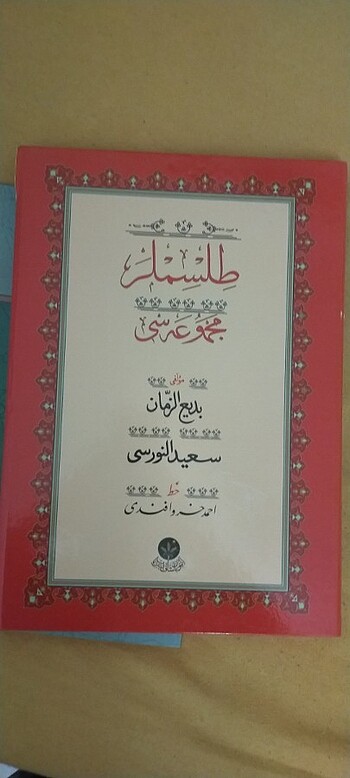 طلسملر
مجموعه سی
مؤلفی
بديع الزّمان
سعيد النورسی
خط
احمد خسرو افندی